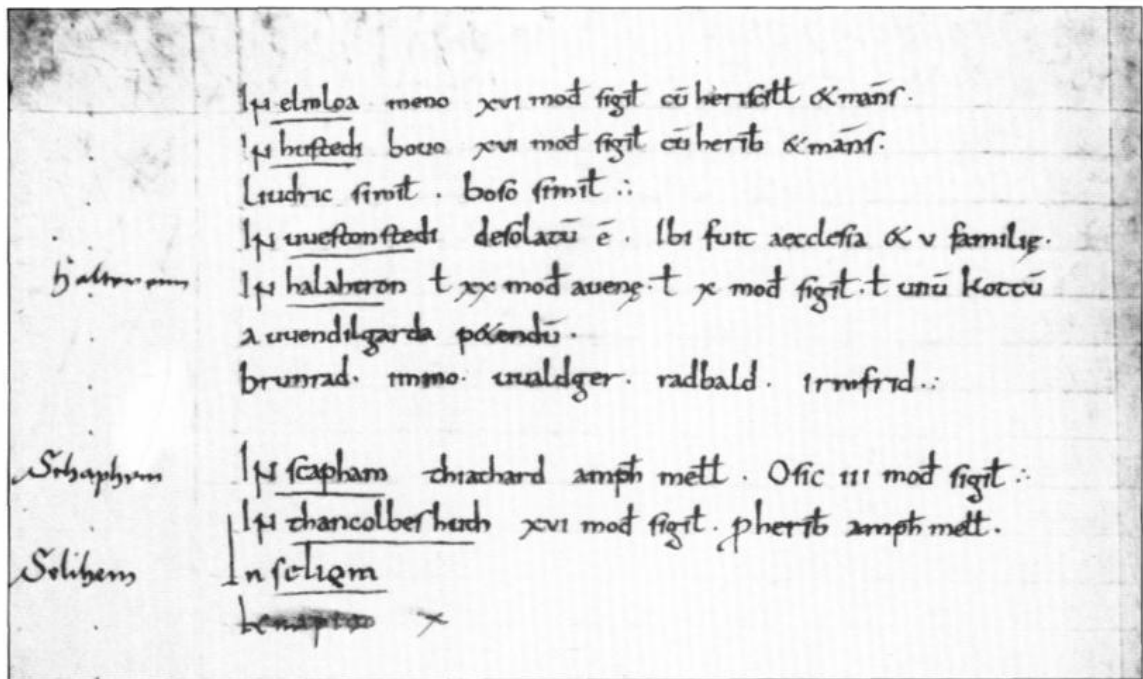 In elmloa meno xvi mod sigil cū heriscill &māns.
In hustedi bovo xvi mod sigil cū herib &māns.
Liudric simil. boso simil ∴
In uuestonstedi desolatū ē. Ibi fuit aecclesia & v familię.
Halteren
In halahtron ł xx mod avenę. ł x mod sigil. ł unū kottū
a uuendilgarda p&endū.
brunrad. immo. uualdger. radbald. irmfrid ∴
Schaphem
In scapham thiathard amph mell. Osic iii mod sigil ∴
In thancolbeshuth xvi mod sigil. p herib amph mell.
Selihem
In seliem
x